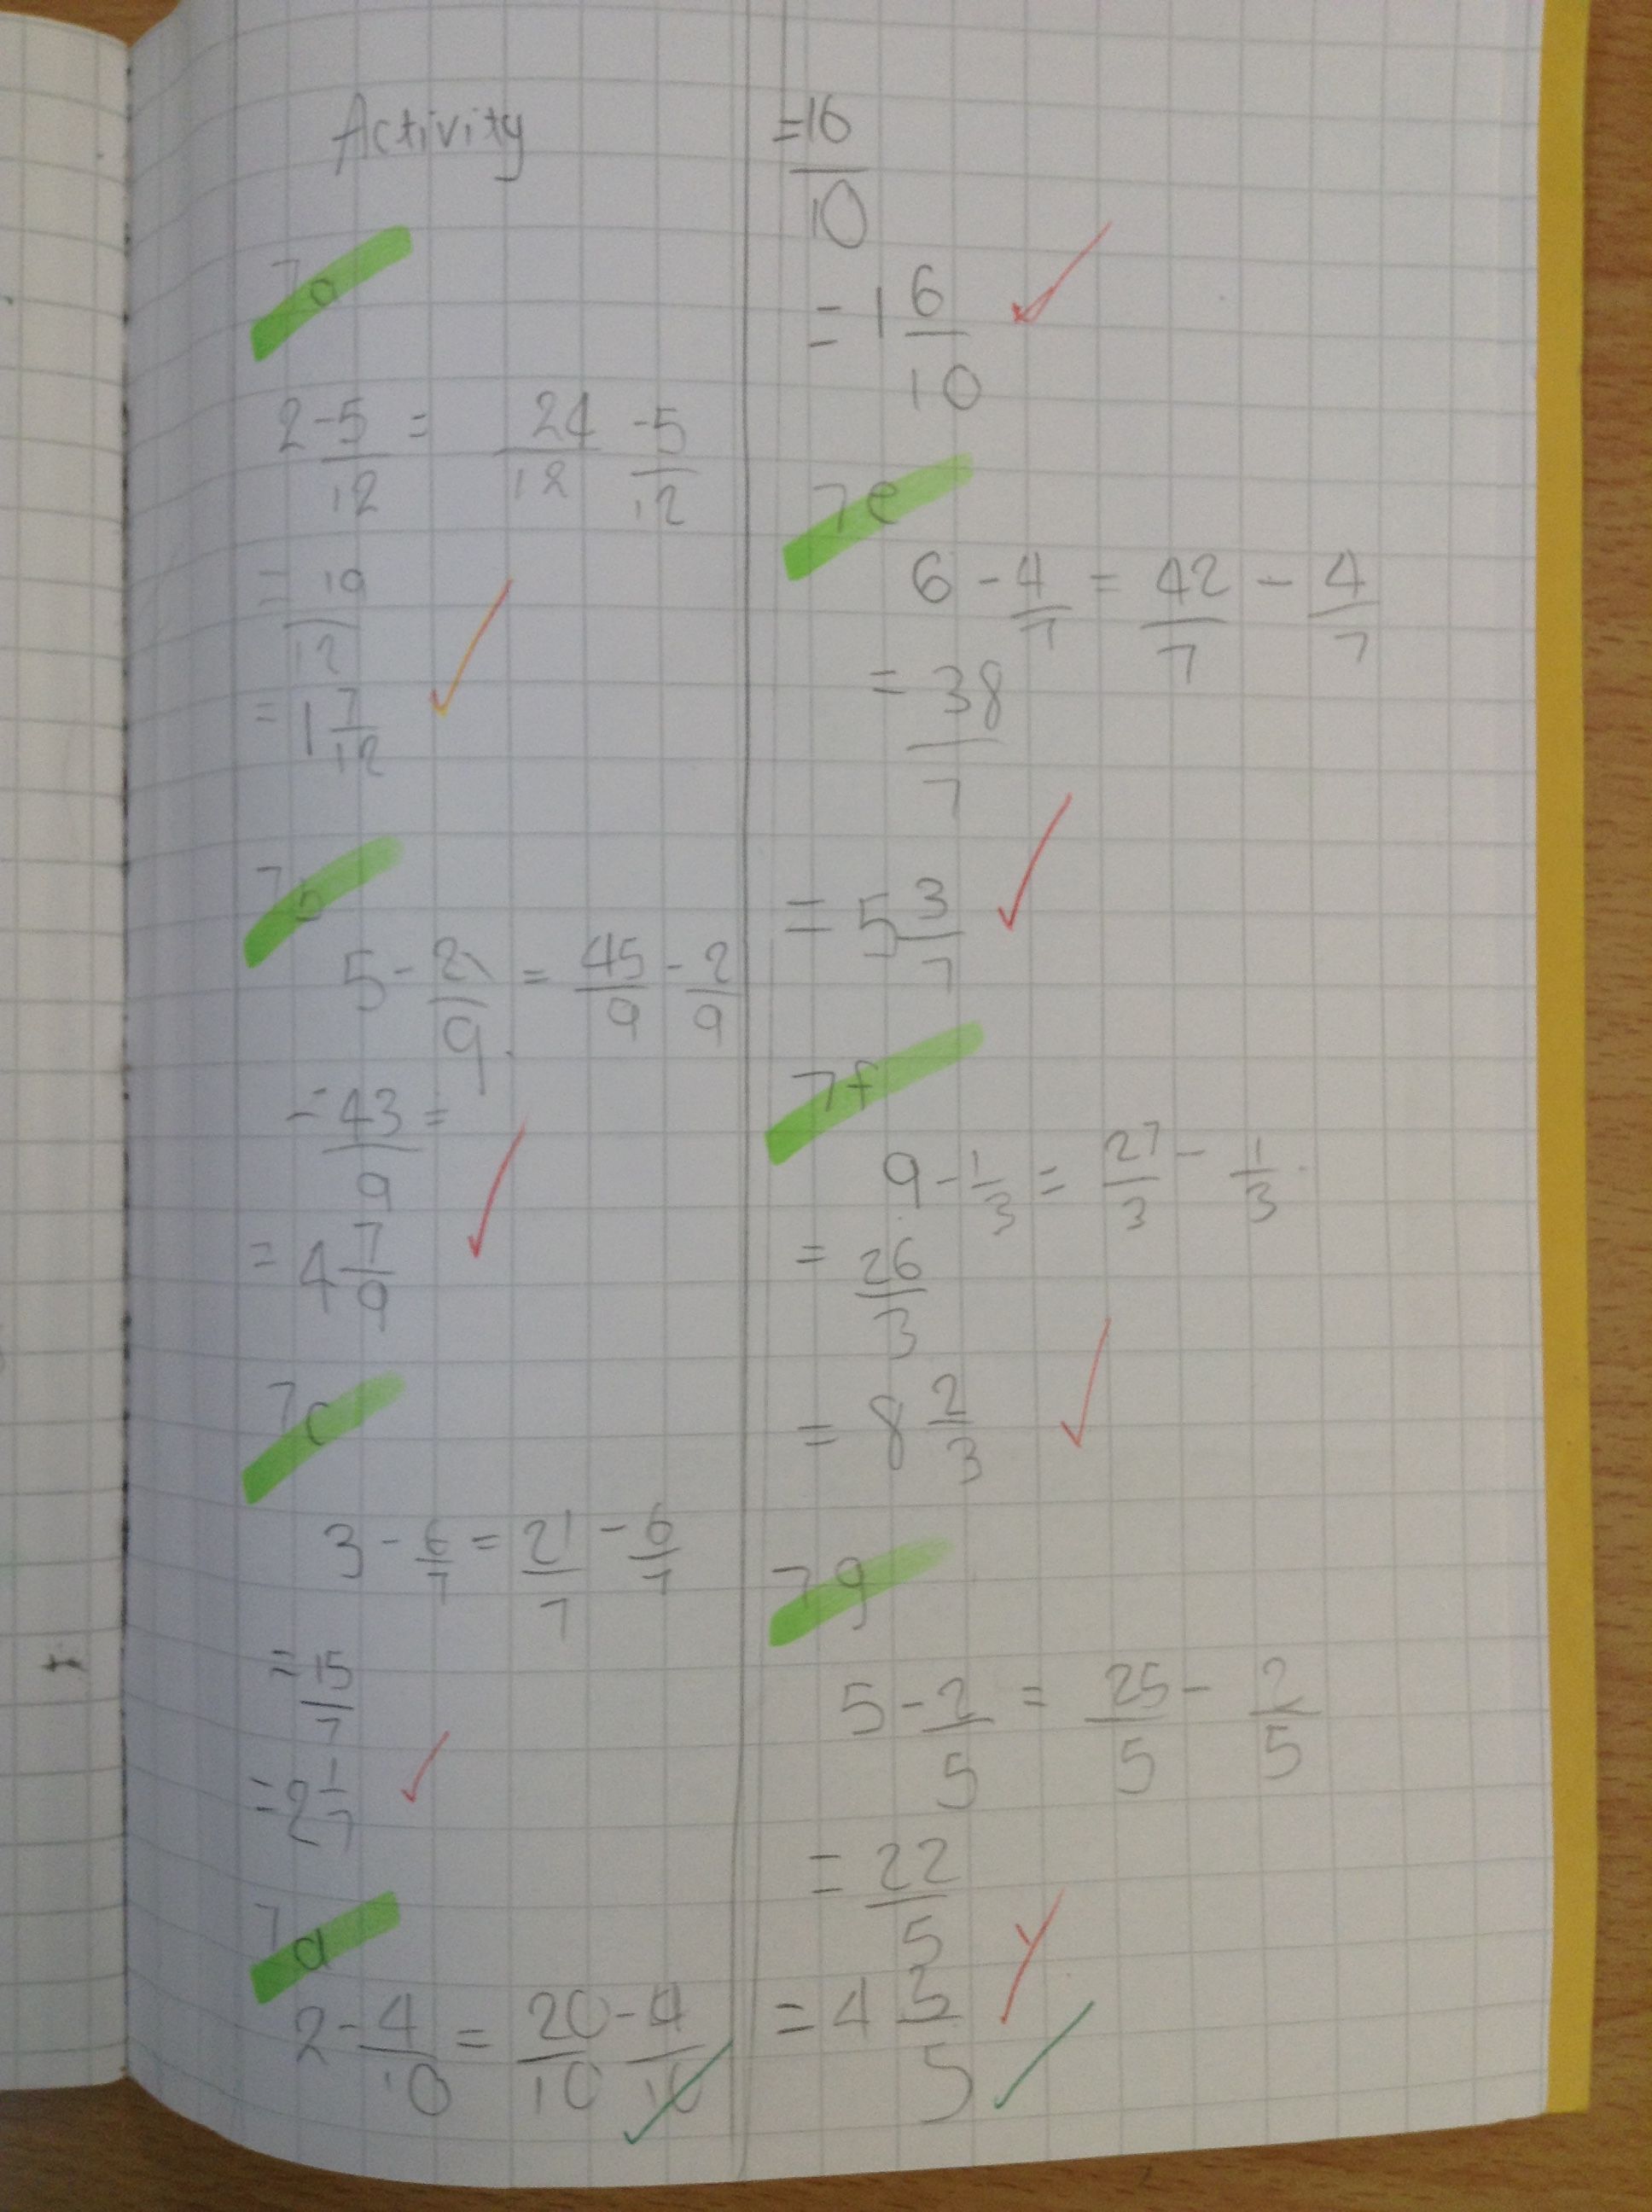 Activity
7a
2 - 5/12 = 24/12 - 5/12
= 19/12
= 1 7/12
7b
5 - 2/9 = 45/9 - 2/9
= 43/9 =
= 4 7/9
7c
3 - 6/7 = 21/7 - 6/7
= 15/7
= 2 1/7
7d
2 - 4/10 = 20/10 - 4/10
= 16/10
= 1 6/10
7e
6 - 4/7 = 42/7 - 4/7
= 38/7
= 5 3/7
7f
9 - 1/3 = 27/3 - 1/3
= 26/3
= 8 2/3
7g
5 - 2/5 = 25/5 - 2/5
= 22/5